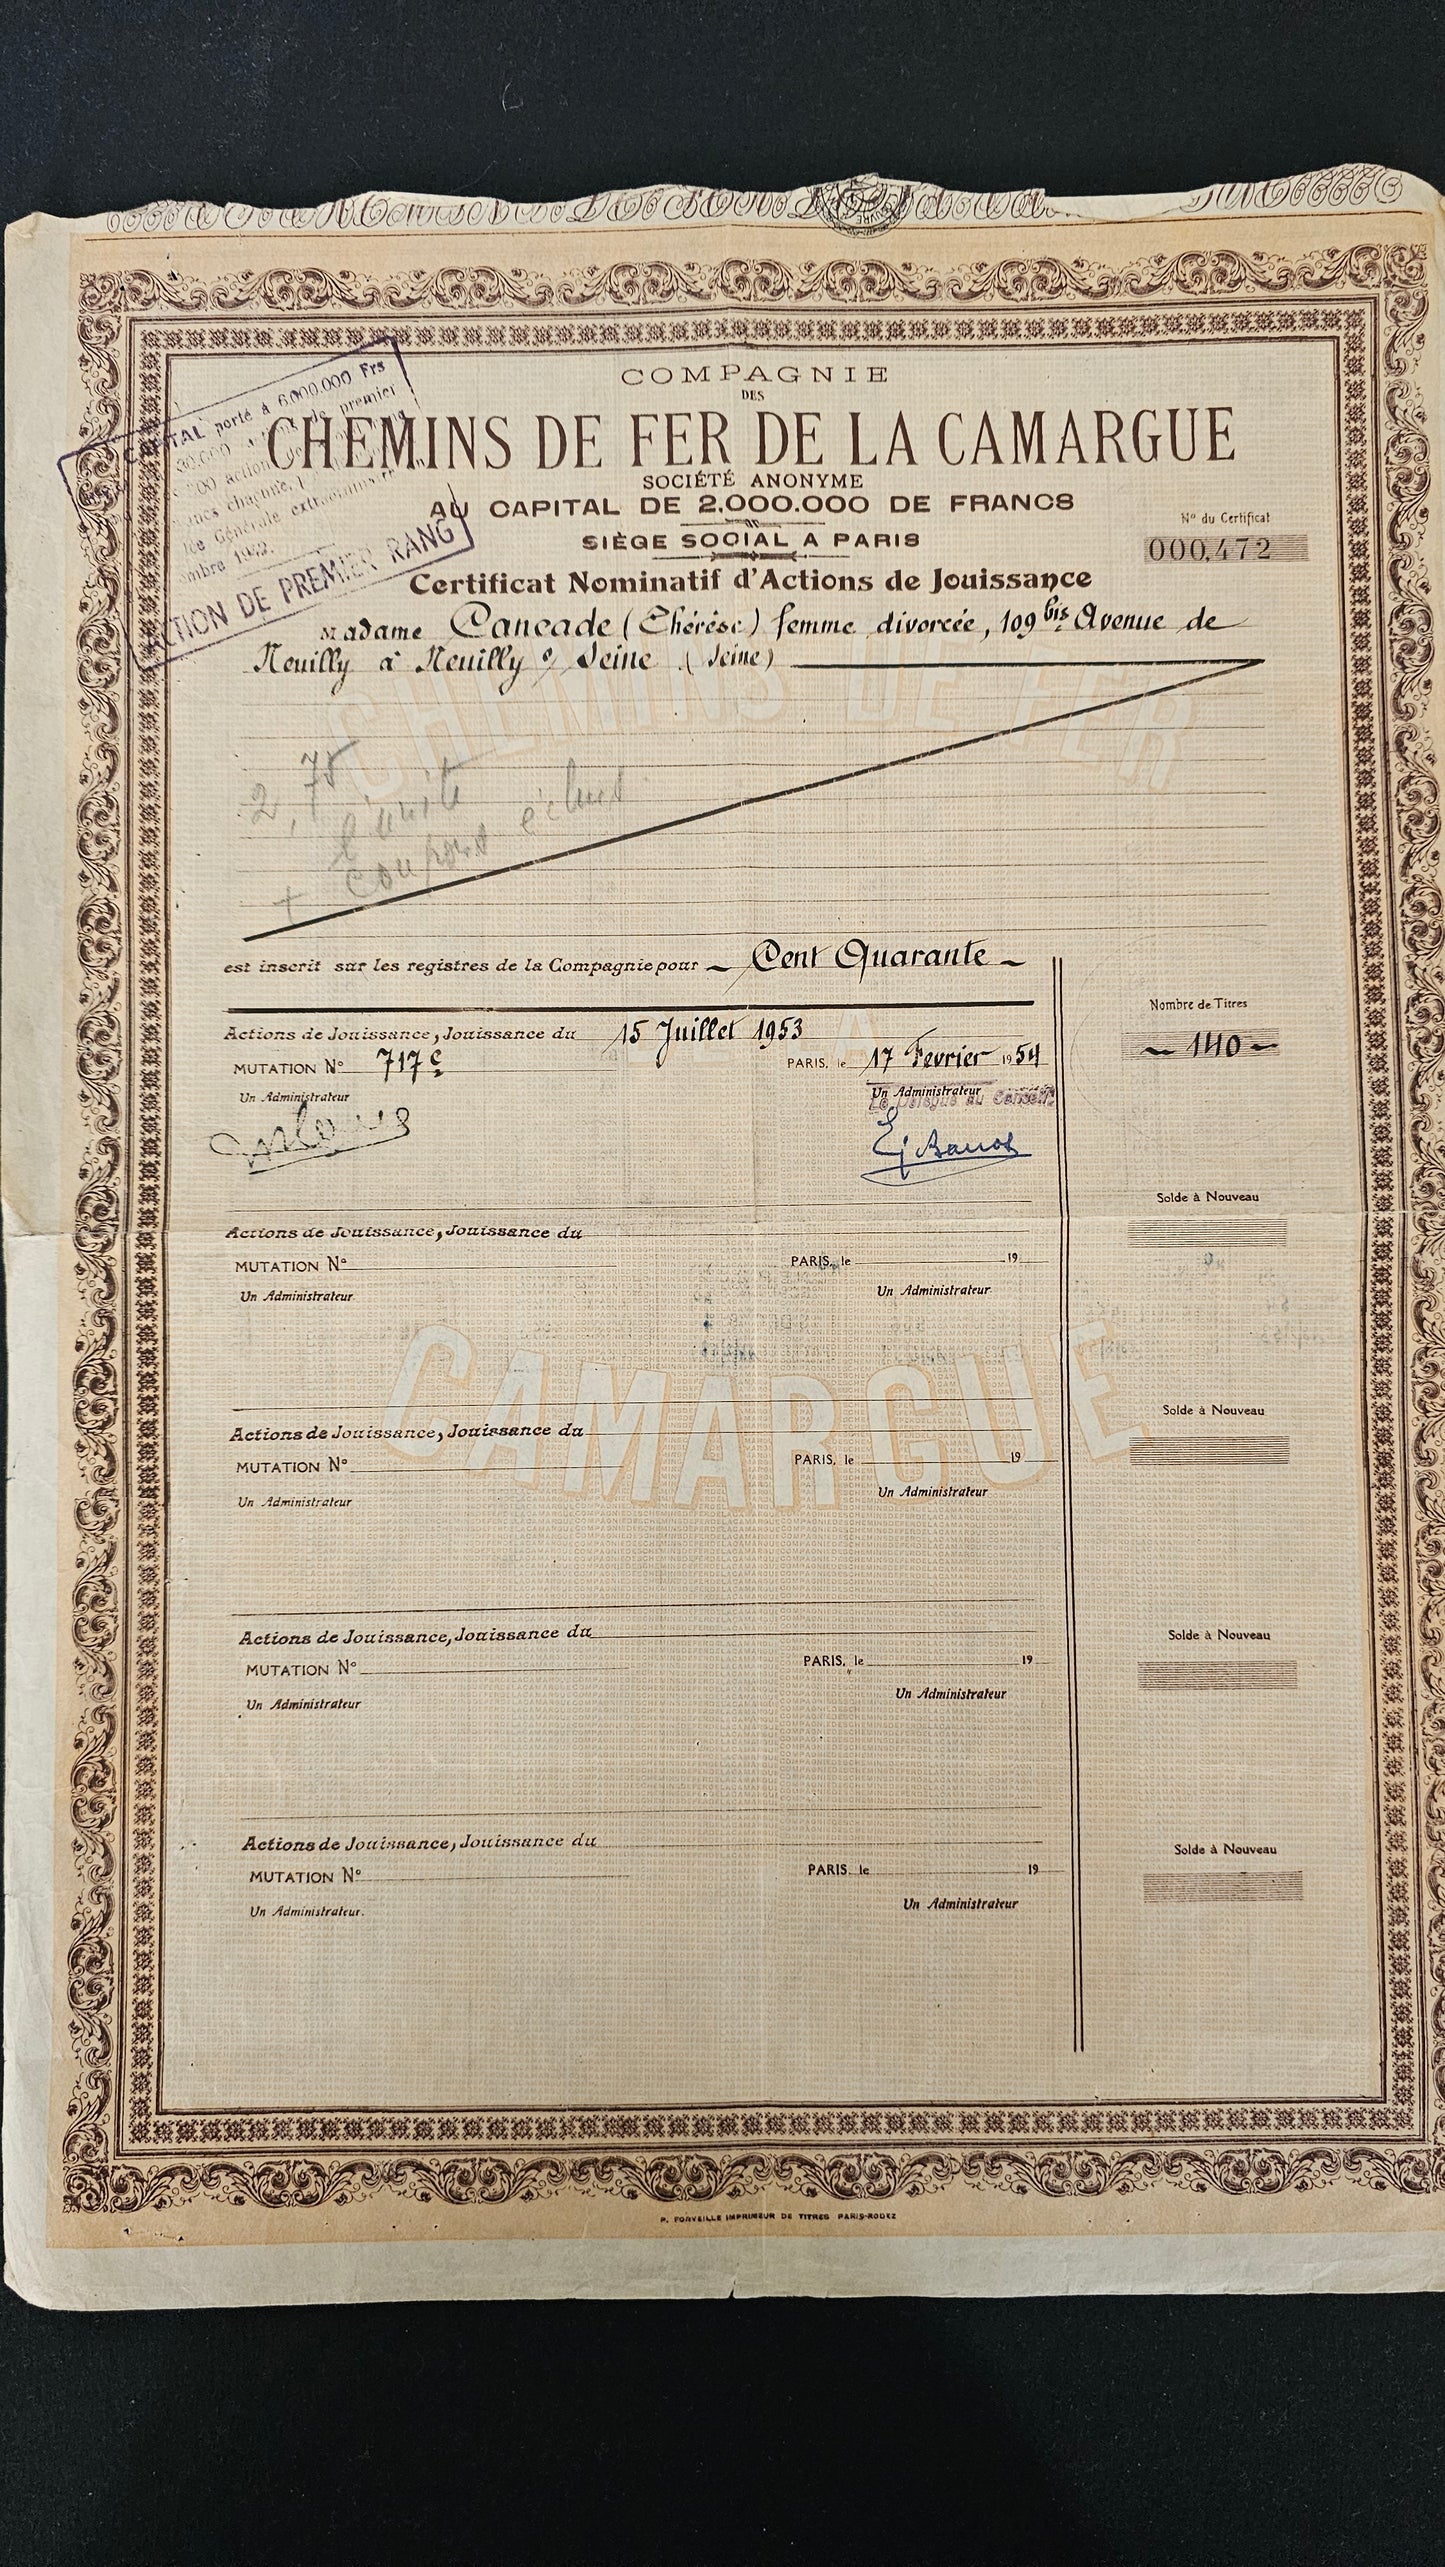 COMPAGNIE
DES
CHEMINS DE FER DE LA CAMARGUE
SOCIÉTÉ ANONYME
AU CAPITAL DE 2.000.000 DE FRANCS
SIÈGE SOCIAL A PARIS
Nº du Certificat
000,472
porté à 6.000.000 Frs
premier
actions
chacune,
Générale
DE PREMIER RANG
Certificat Nominatif d'Actions de Jouissance
Madame Cancade (Thérèse) femme divorcée, 109 bis Avenue de
Neuilly à Neuilly s/ Seine (Seine)
CHEMINS DE FER
2,75
l'unité
+ coupons échus
est inscrit sur les registres de la Compagnie pour – Cent Quarante –
Nombre de Titres
– 140 –
Actions de Jouissance, Jouissance du 15 Juillet 1953
MUTATION Nº 717 c PARIS, le 17 Fevrier 1954
Un Administrateur Un Administrateur
Le Délégué du Conseil
Solde à Nouveau
Actions de Jouissance, Jouissance du
MUTATION Nº PARIS, le 19
Un Administrateur Un Administrateur
CAMARGUE
Solde à Nouveau
Actions de Jouissance, Jouissance du
MUTATION Nº PARIS, le 19
Un Administrateur Un Administrateur
Solde à Nouveau
Actions de Jouissance, Jouissance du
MUTATION Nº PARIS, le 19
Un Administrateur Un Administrateur
Solde à Nouveau
Actions de Jouissance, Jouissance du
MUTATION Nº PARIS, le 19
Un Administrateur. Un Administrateur
P. FORVEILLE IMPRIMEUR DE TITRES PARIS-RODEZ